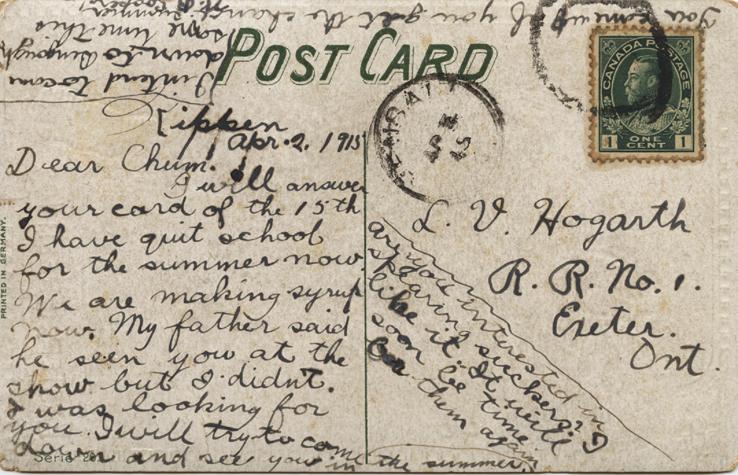 POST CARD
CANADA POSTAGE
1 ONE CENT 1
Kippen
Apr. 2, 1915
Dear Chum.
I will answer
your card of the 15th
I have quit school
for the summer now
We are making syrup
now. My father said
he seen you at the
show but I didn't.
I was looking for
you. I will try to come
down and see you in the summer.
are you interested in
spearing suckers? I
like it. It will
soon be time
for them again
I intend to come
down to
some time this
You come up if you get the chance
L. V. Hogarth
R. R. No. 1.
Exeter.
Ont.
PRINTED IN GERMANY.
Serie